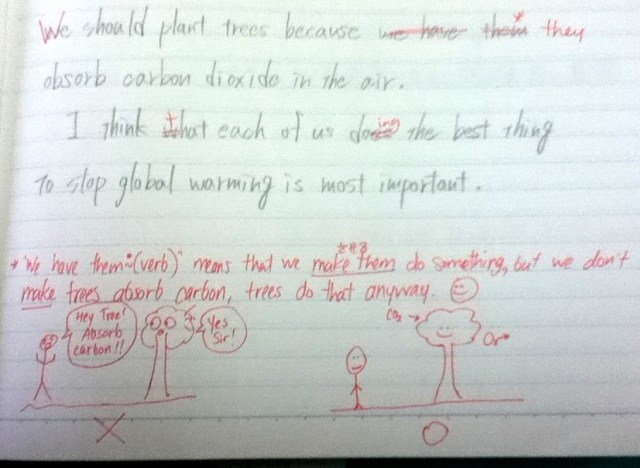 We should plant trees because we have them* they
absorb carbon dioxide in the air.
I think that each of us doing the best thing
to stop global warming is most important.
させる
* "We have them~(verb)" means that we make them do something, but we don't
make trees absorb carbon, trees do that anyway.
Hey Tree!
Absorb
carbon!!
Yes
Sir!
CO₂ →
O₂ →